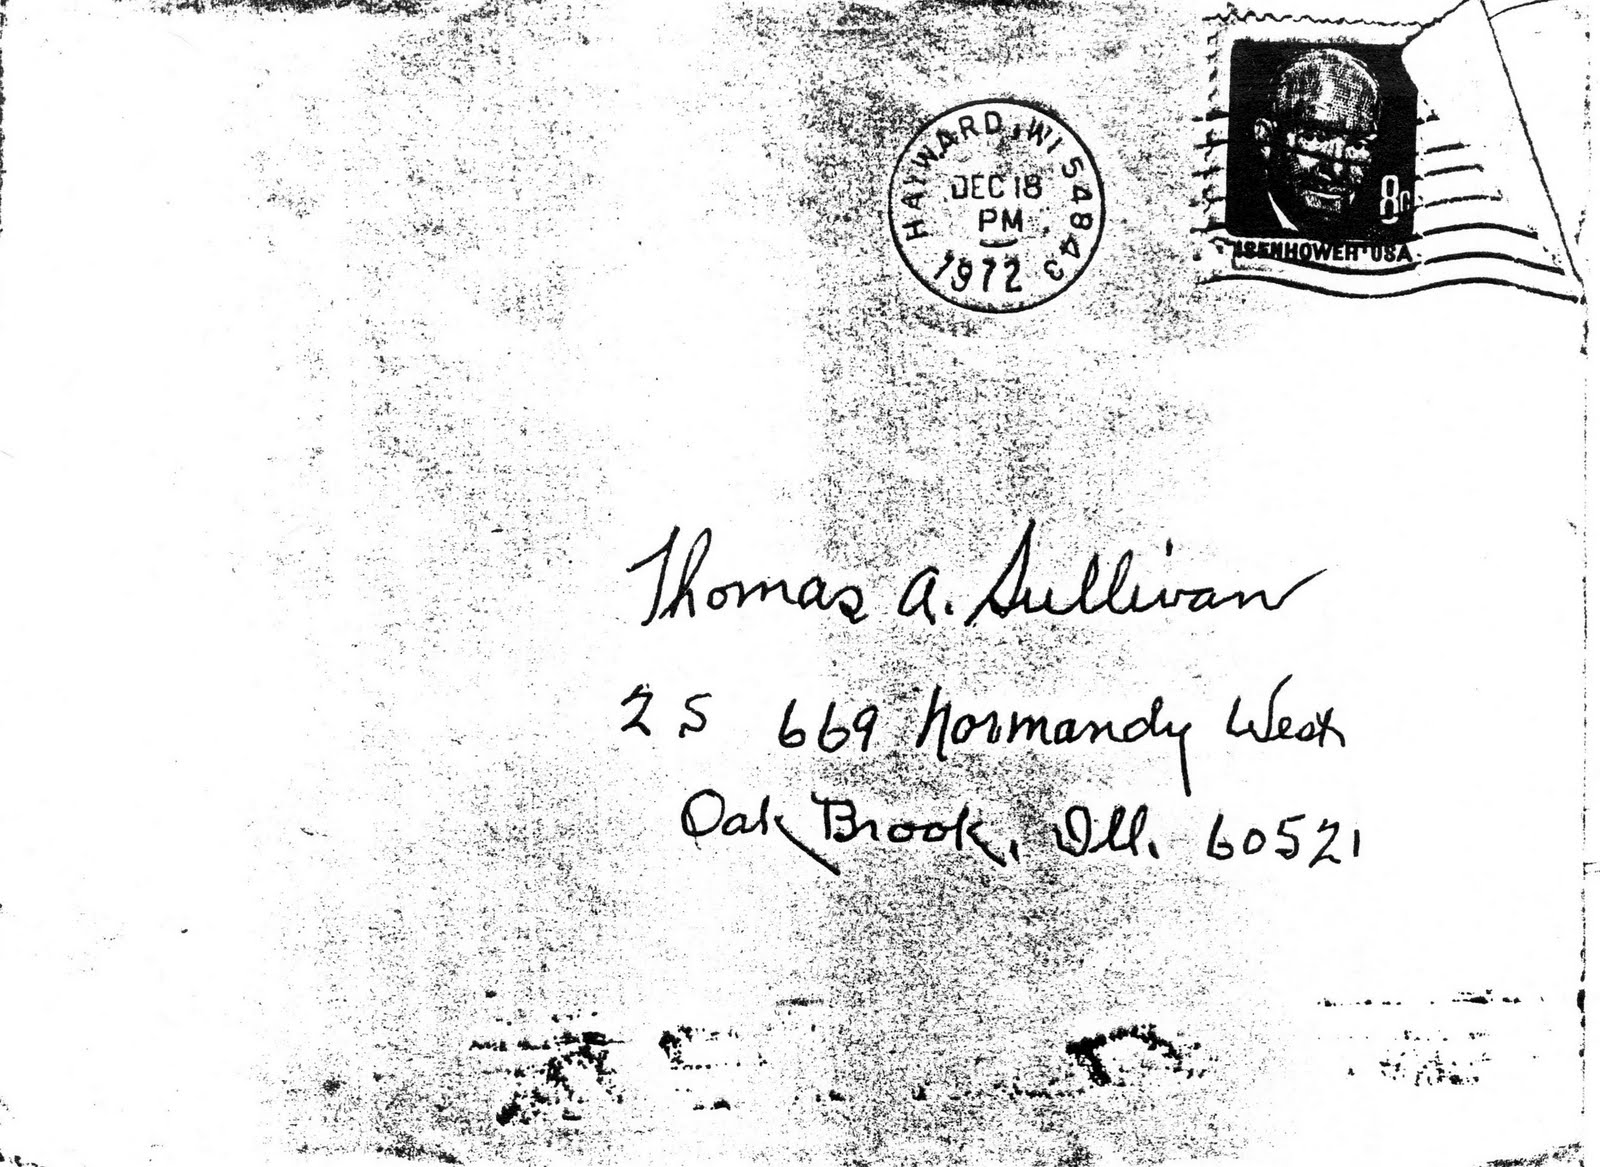 HAYWARD, WI 54843
DEC 18
PM
1972
8c
EISENHOWER·USA
Thomas A. Sullivan
2 S 669 Normandy West
Oak Brook, Ill. 60521